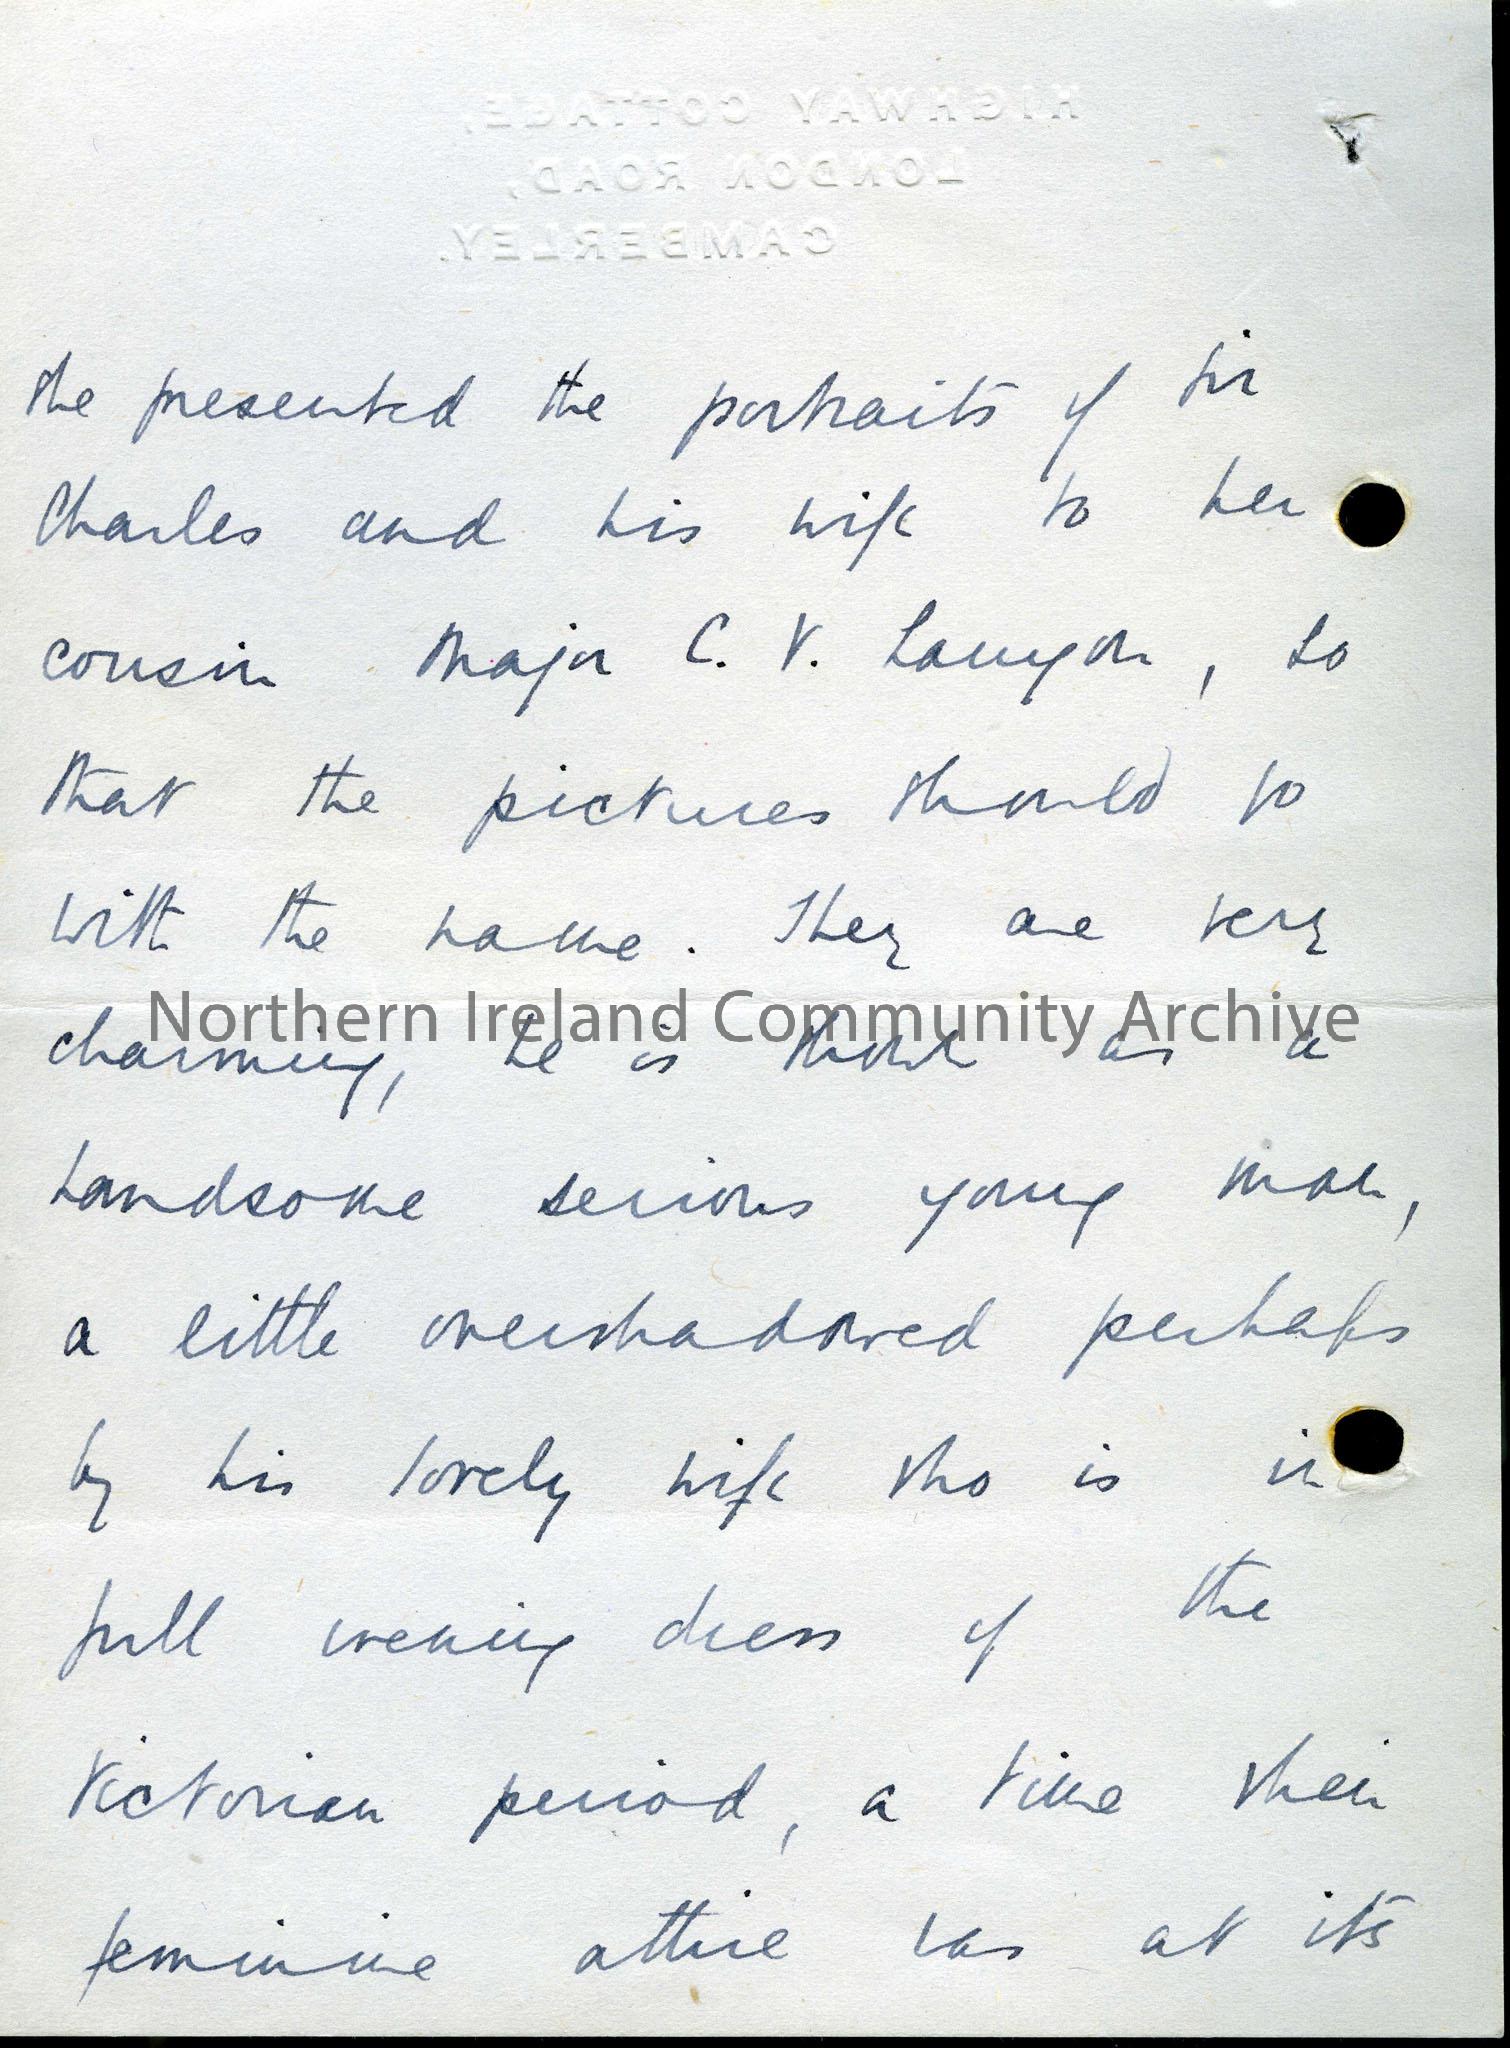 HIGHWAY COTTAGE,
LONDON ROAD,
CAMBERLEY.
she presented the portraits of Sir
Charles and his wife to her
cousin Major C. V. Lanyon, so
that the pictures should go
with the name. They are very
Northern Ireland Community Archive
charming, he is shown as a
handsome serious young man,
a little overshadowed perhaps
by his lovely wife who is in
full evening dress of the
Victorian period, a time when
feminine attire was at its